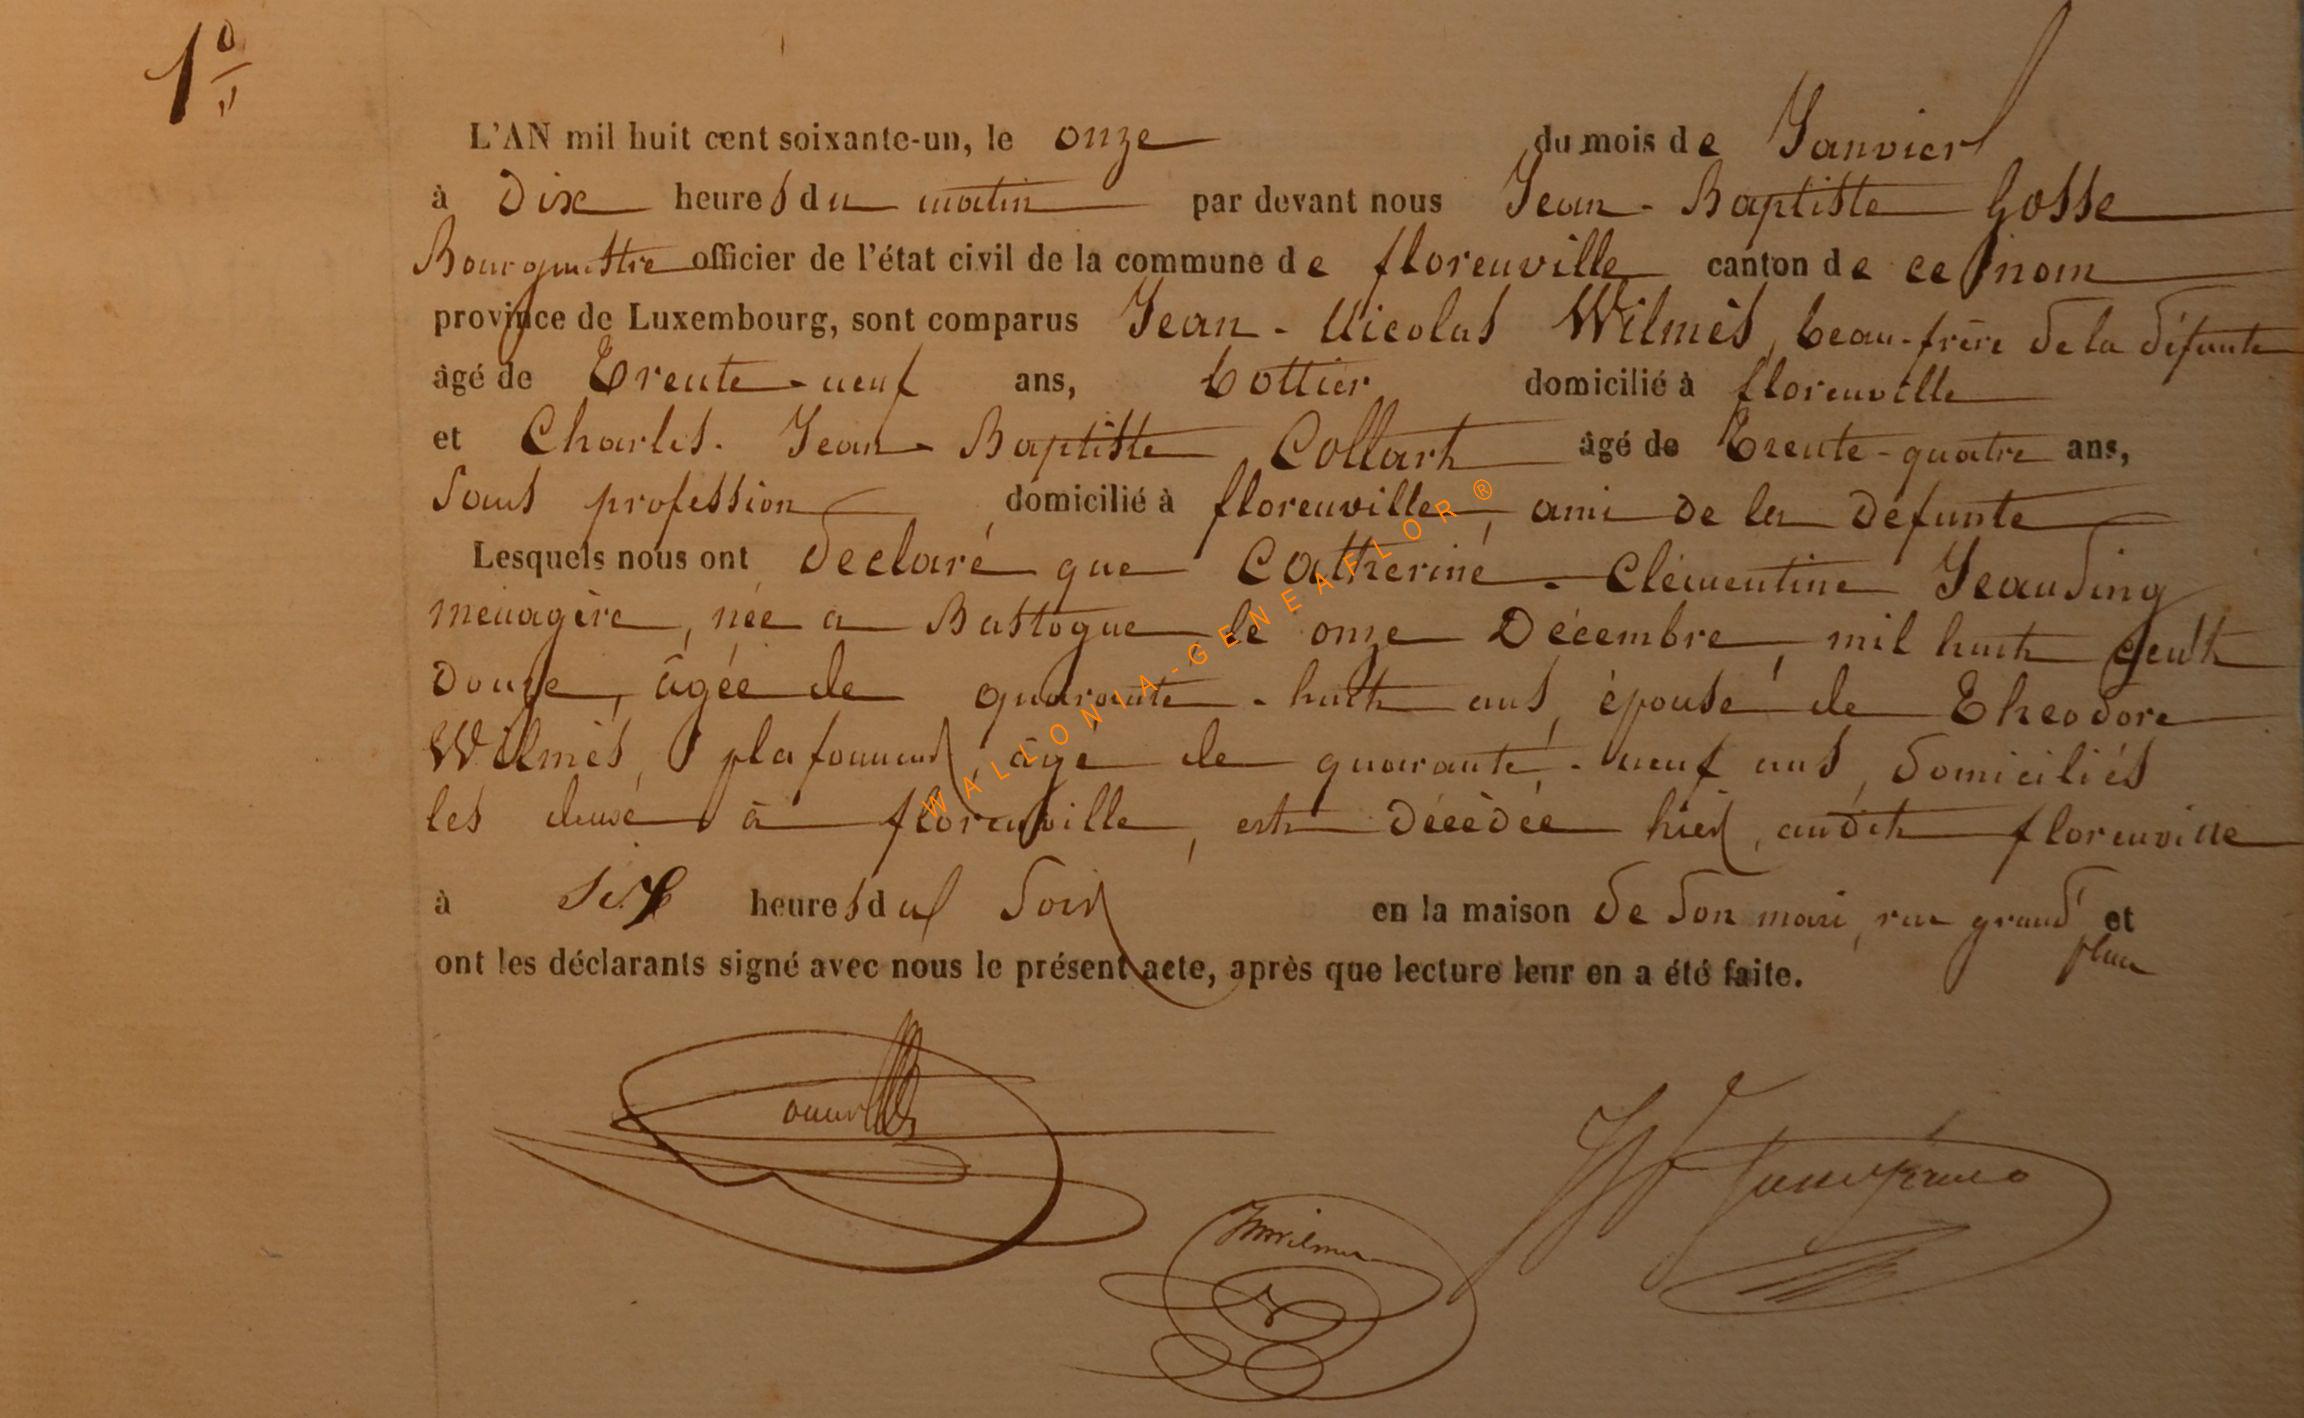 1°
L'AN mil huit cent soixante-un, le onze du mois de Janvier
à Dix heures du matin par devant nous Jean-Baptiste Gosse
Bourgmestre officier de l'état civil de la commune de florenville canton de ce nom
province de Luxembourg, sont comparus Jean-Nicolas Wilmès, beau-frère de la défunte
âgé de Trente-neuf ans, Cottier domicilié à florenville
et Charles-Jean-Baptiste Collart âgé de Trente-quatre ans,
sans profession domicilié à florenville, ami de la Défunte
Lesquels nous ont déclaré que Catherine-Clémentine Jeanding
ménagère, née à Bastogne le onze Décembre mil huit cent
Douze, âgée de quarante-huit ans, épouse de Théodore
Wilmès, plafonneur, âgé de quarante-neuf ans, domiciliés
les deux à florenville, est Décédée hier, audit florenville
à six heures du soir en la maison de son mari, rue grand et
place
ont les déclarants signé avec nous le présent acte, après que lecture leur en a été faite.
JNWilmes
WALLONIA-GENEAFLOR®